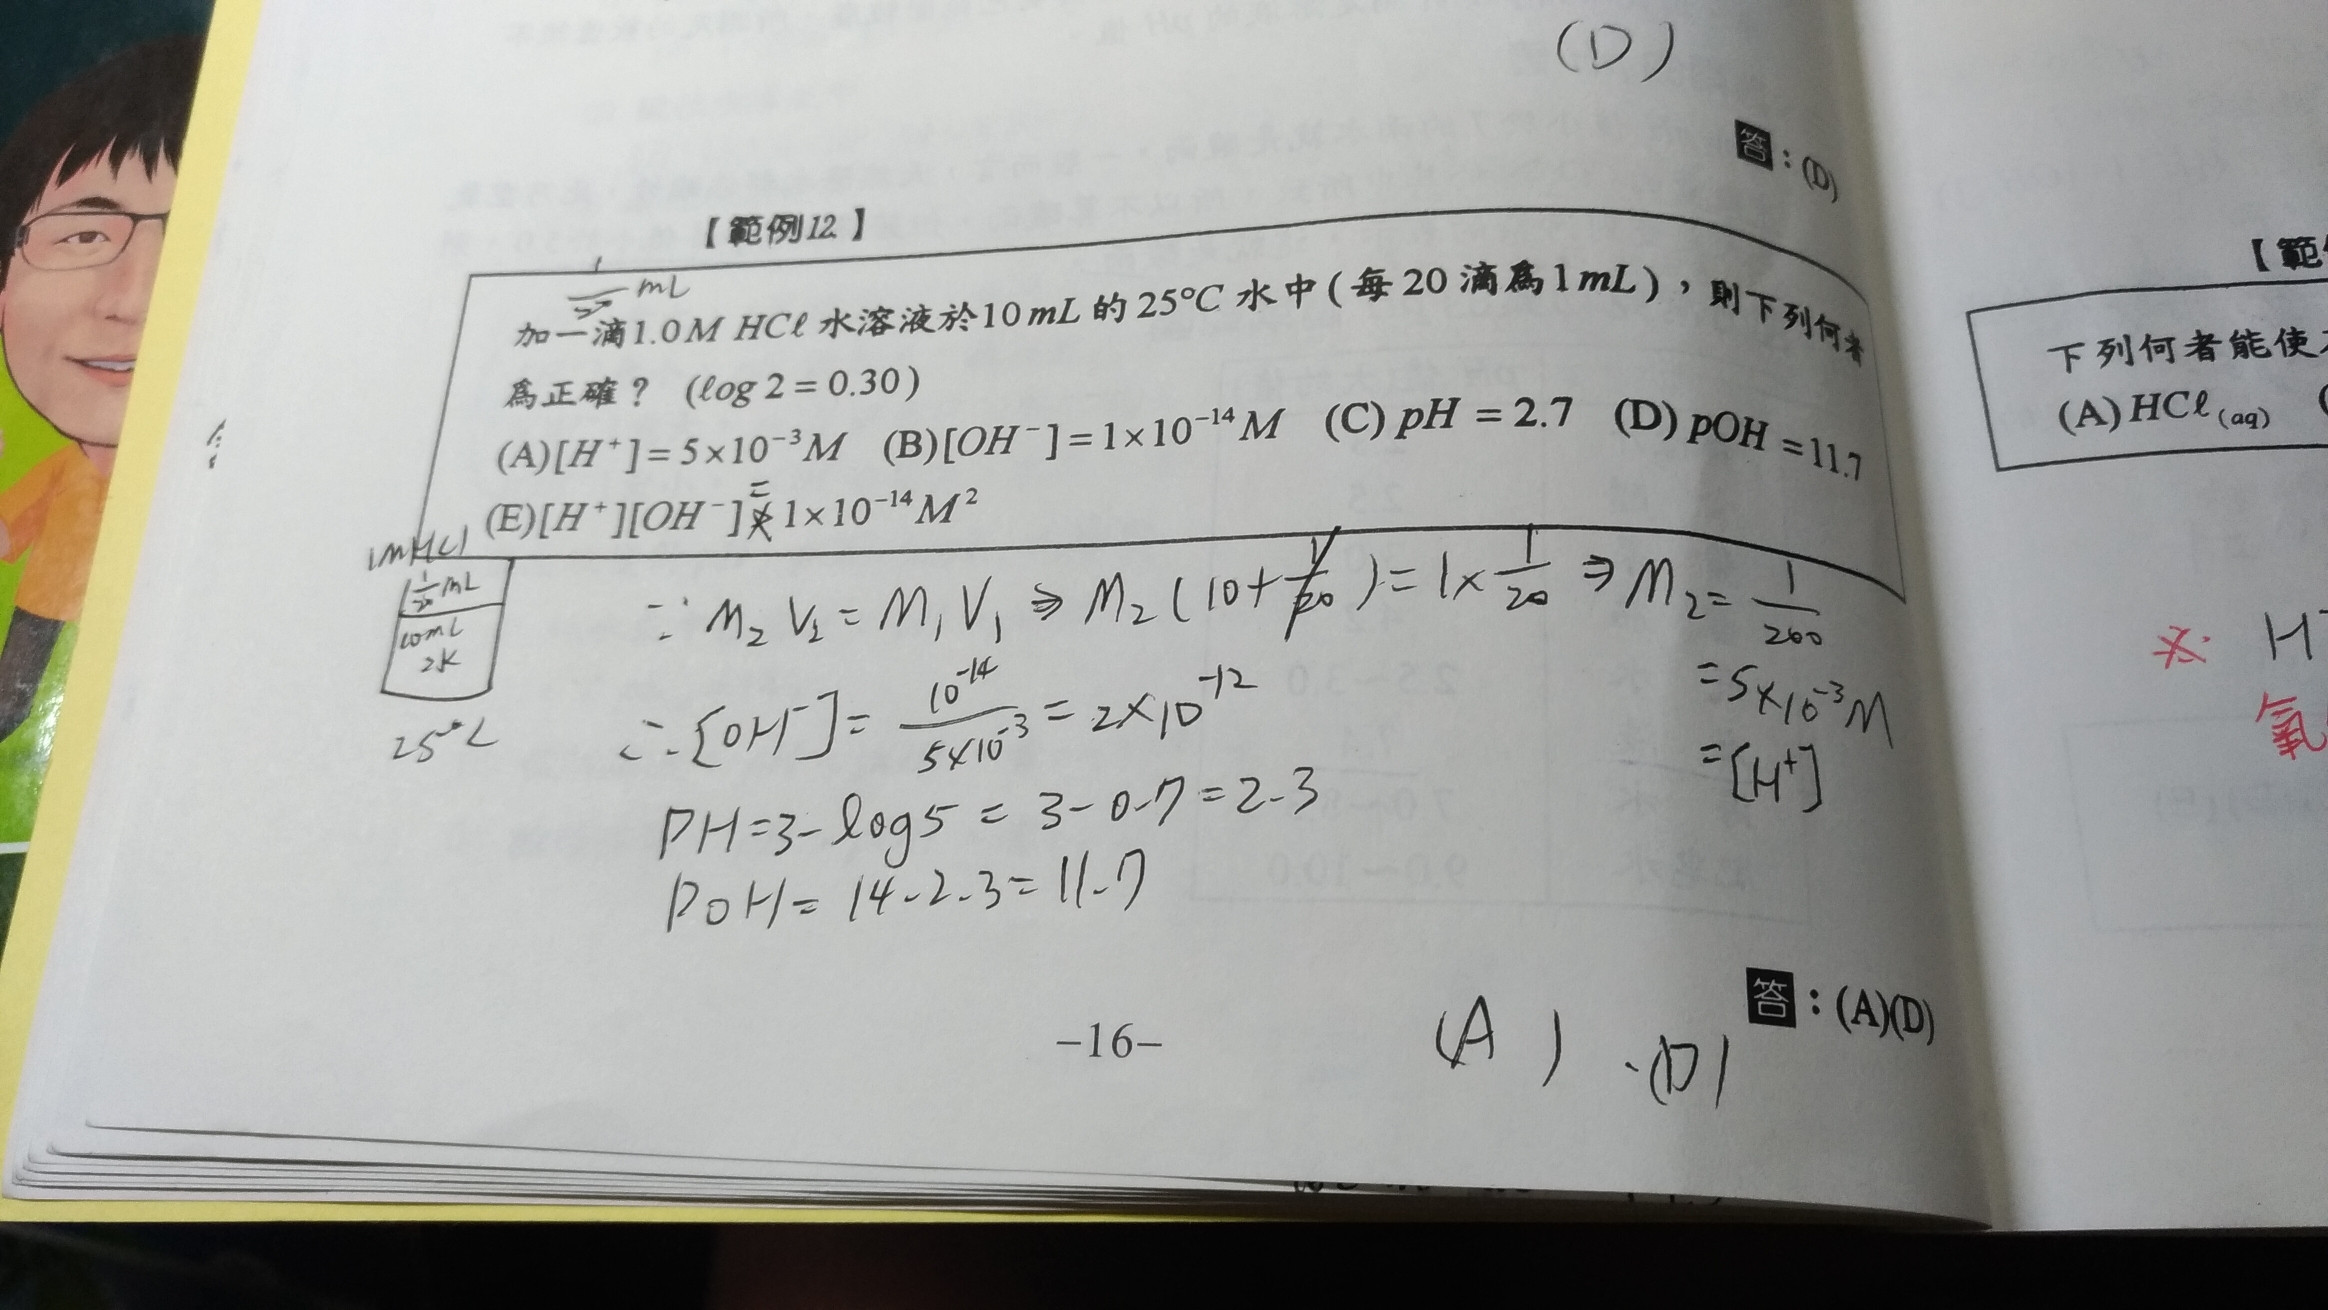 (D)
答：(D)
【範例12】
1/20 mL
加一滴1.0M HCℓ 水溶液於10mL 的 25°C 水中(每20滴為1mL)，則下列何者
為正確？ (ℓog 2 = 0.30)
(A)[H⁺]=5×10⁻³M (B)[OH⁻]=1×10⁻¹⁴M (C) pH = 2.7 (D) pOH =11.7
(E)[H⁺][OH⁻]≠1×10⁻¹⁴M²
=
1mHCl
1/20 mL
10mL
水
25°C
∵ M₂V₂ = M₁V₁ ⇒ M₂(10+1/20) = 1×1/20 ⇒ M₂ = 1/200
= 5×10⁻³M
= [H⁺]
∴ [OH⁻] = 10⁻¹⁴/5×10⁻³ = 2×10⁻¹²
PH=3-log5 = 3-0.7 = 2.3
POH = 14-2.3 = 11.7
(A) (D)
答：(A)(D)
-16-
【範
下列何者能使
(A)HCℓ(aq)
※ H
氧